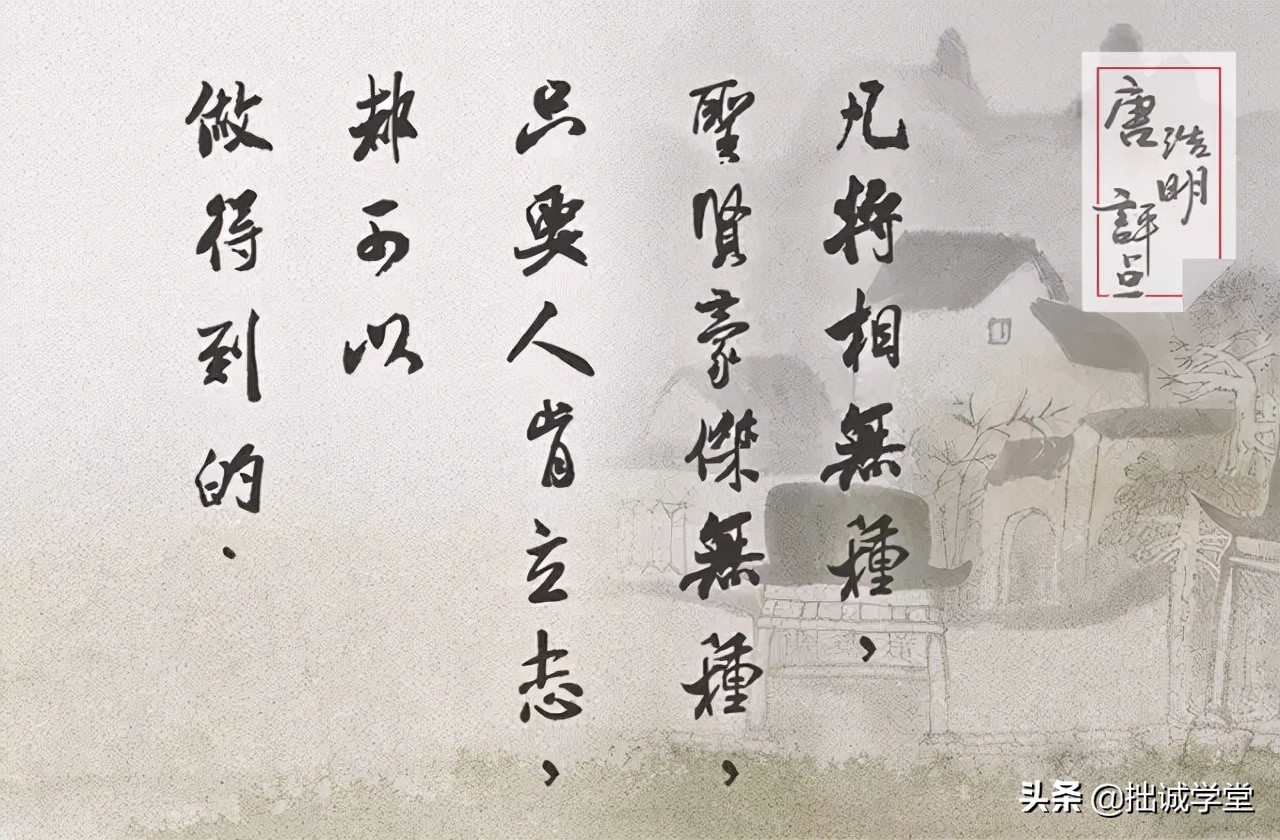 唐浩明
評点
凡將相無種，
聖賢豪傑無種，
只要人肯立志，
都可以
做得到的.
头条 @拙诚学堂